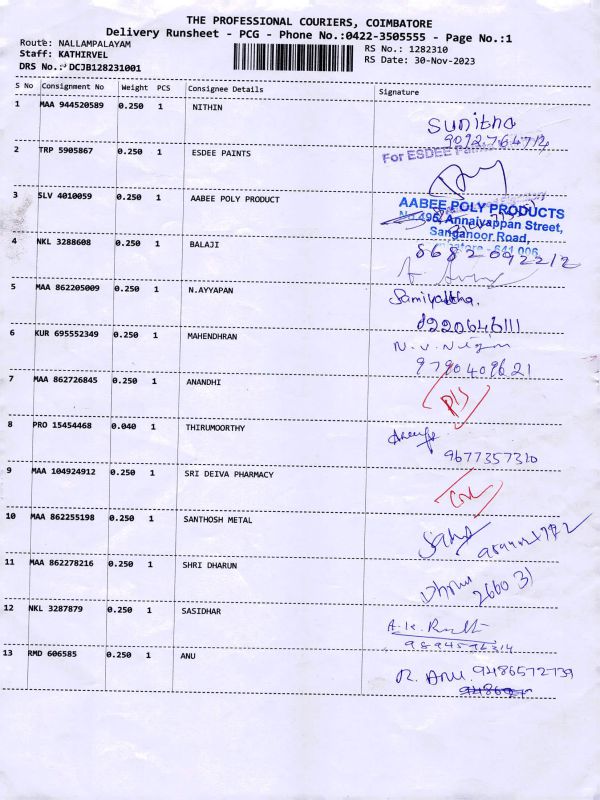 THE PROFESSIONAL COURIERS, COIMBATORE
Delivery Runsheet - PCG - Phone No.:0422-3505555 - Page No.:1
Route: NALLAMPALAYAM
Staff: KATHIRVEL
DRS No.: DCJB128231001
RS No.: 1282310
RS Date: 30-Nov-2023
S No Consignment No Weight PCS Consignee Details Signature
1 MAA 944520589 0.250 1 NITHIN
Sunitha
9092764712
2 TRP 5905867 0.250 1 ESDEE PAINTS
For ESDEE
3 SLV 4010059 0.250 1 AABEE POLY PRODUCT
AABEE POLY PRODUCTS
No.496, Annaiyappan Street,
Sanganoor Road,
641 006
4 NKL 3288608 0.250 1 BALAJI
8682092212
5 MAA 862205009 0.250 1 N.AYYAPAN
8220646111
6 KUR 695552349 0.250 1 MAHENDHRAN
9790409621
7 MAA 862726845 0.250 1 ANANDHI
8 PRO 15454468 0.040 1 THIRUMOORTHY
9677357320
9 MAA 104924912 0.250 1 SRI DEIVA PHARMACY
10 MAA 862255198 0.250 1 SANTHOSH METAL
11 MAA 862278216 0.250 1 SHRI DHARUN
266031
12 NKL 3287879 0.250 1 SASIDHAR
13 RMD 606585 0.250 1 ANU
R. Anu. 9486572739